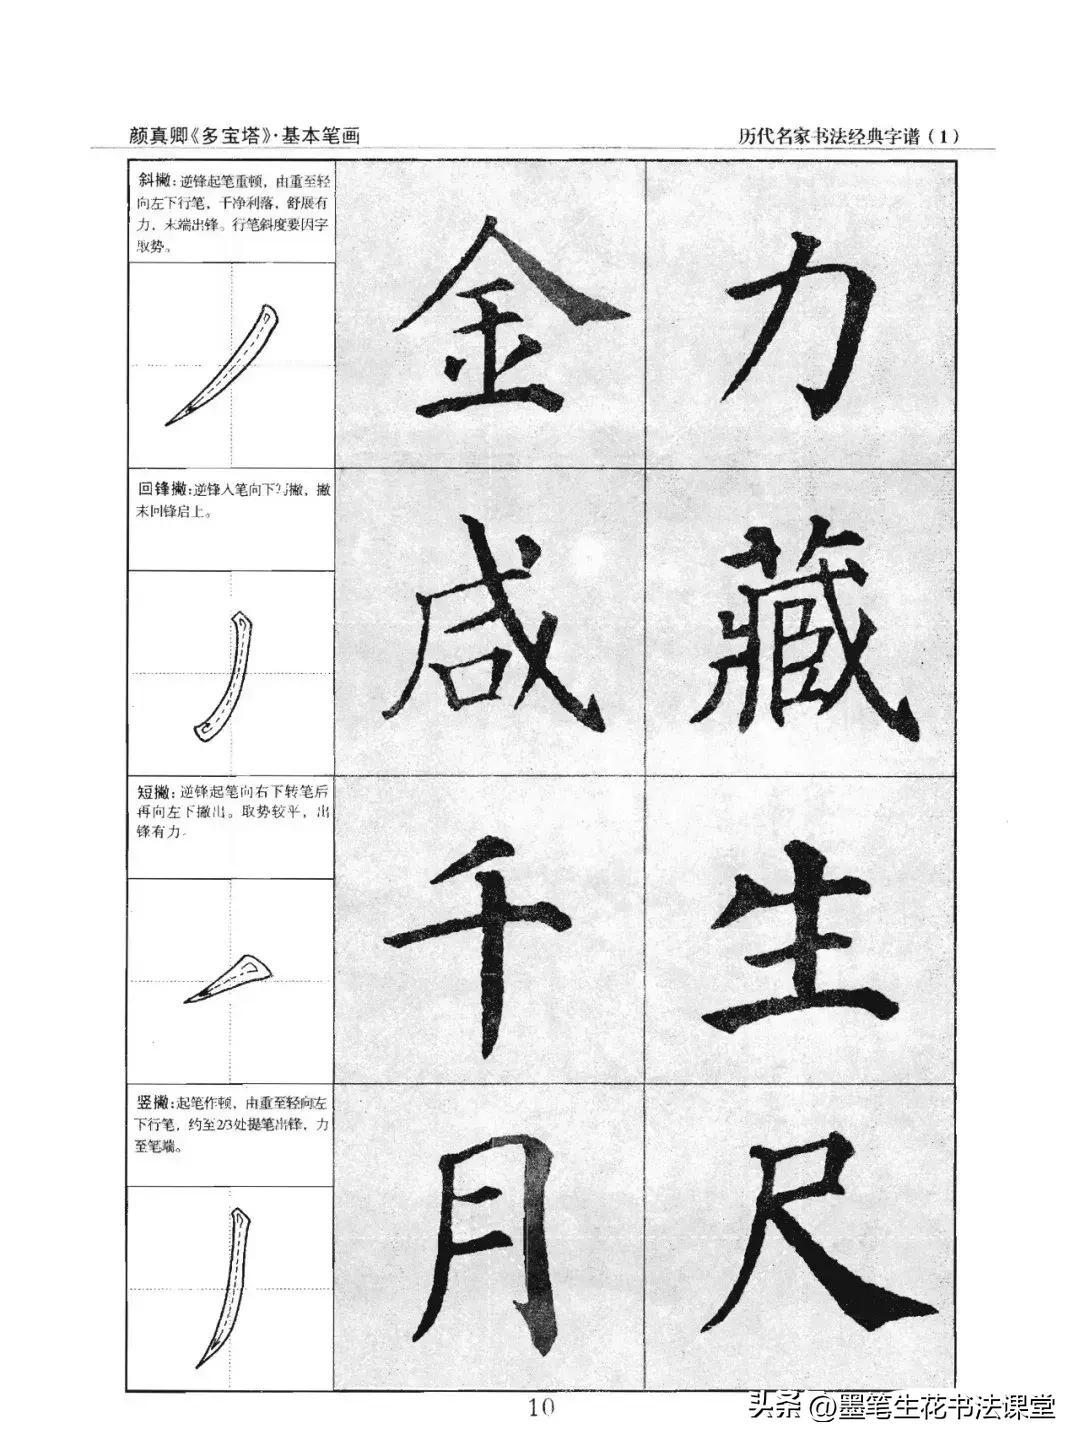 颜真卿《多宝塔》·基本笔画
历代名家书法经典字谱(1)
斜撇:逆锋起笔重顿,由重至轻
向左下行笔,干净利落,舒展有
力,末端出锋。行笔斜度要因字
取势。
金 力
回锋撇:逆锋入笔向下行撇,撇
末回锋启上。
咸 藏
短撇:逆锋起笔向右下转笔后
再向左下撇出。取势较平,出
锋有力。
千 生
竖撇:起笔作顿,由重至轻向左
下行笔,约至2/3处提笔出锋,力
至笔端。
月 尺
10
头条 @墨笔生花书法课堂